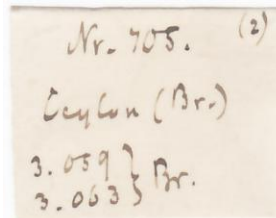 Nr. 705. (2)
Ceylon (Br.)
3.059 } Br.
3.063